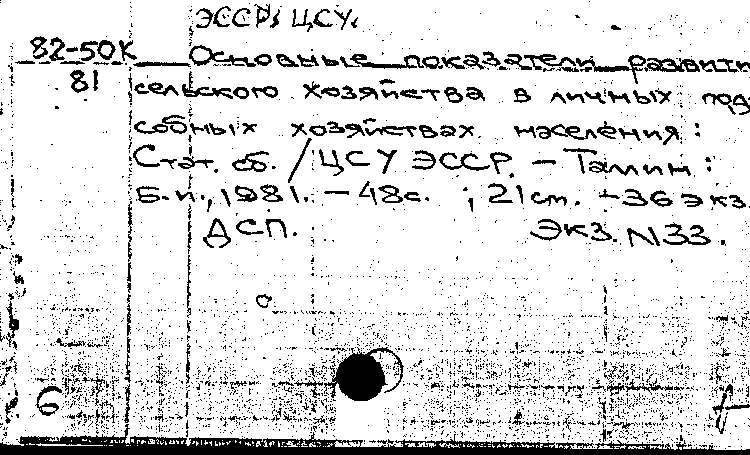 ЭССР. ЦСУ.
82-50К Основные показатели развити
81 сельского хозяйства в личных под
собных хозяйствах населения:
Стат. сб. / ЦСУ ЭССР. – Таллин:
Б.и., 1981. – 48с. ; 21 cm. – 36 экз.
ДСП. Экз. N33.
6